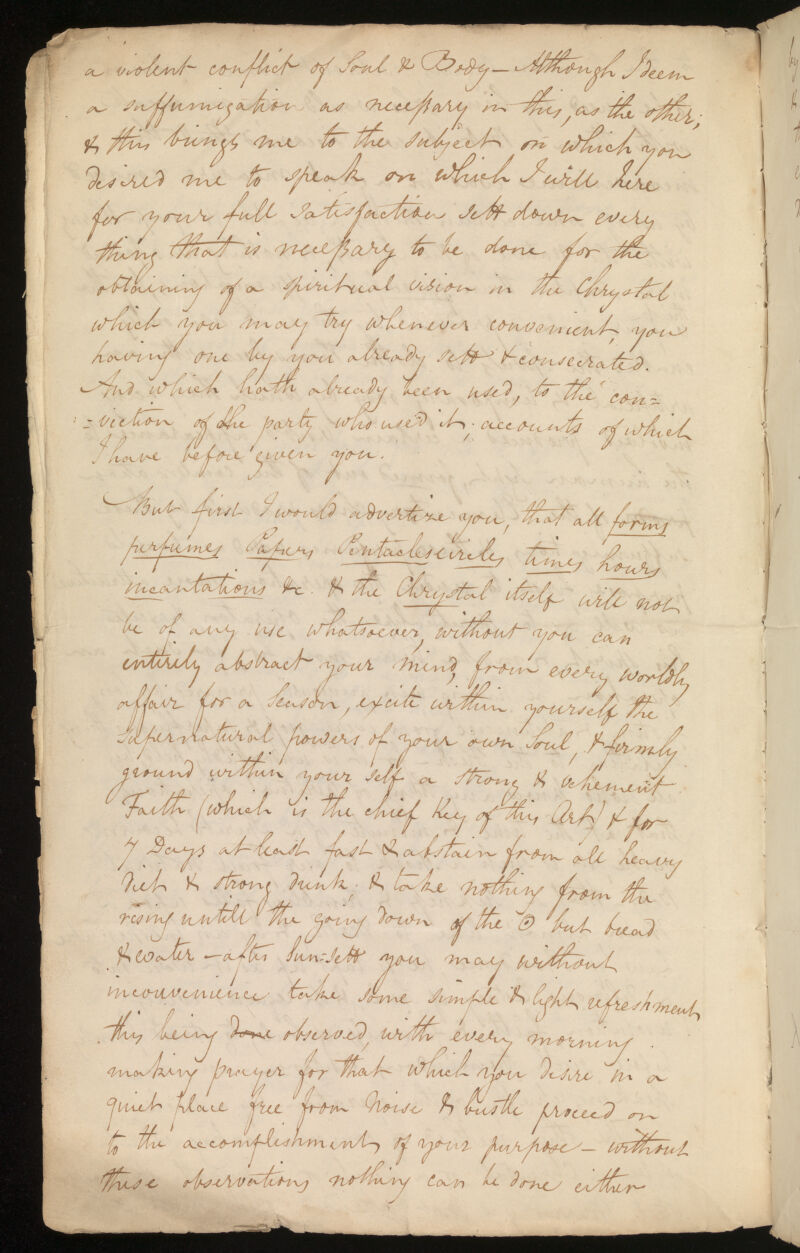 a violent conflict of Soul & Body – Although I deem
a suffumigation as necessary in this, as the other;
& this brings me to the subject on which you
desired me to speak on which I will here
for your full satisfaction sett down every
thing that is necessary to be done for the
obtaining of a spiritual vision in the Chrystal
which you may try whenever convenient, you
having one by you already sett & consecrated.
And which hath already been used, to the con=
=viction of the party who used it; accounts of which
I have before given you.
But first I would advertize you, that all forms
perfumes Papers Pentacles circles times hours
incantations &c. & the Chrystal itself will not
be of any use whatsoever, without you can
entirely abstract your mind, from every worldly
affair for a Season, excite within yourself the
supernatural powers of your own Soul, & firmly
ground within your self a strong & vehement
Faith (which is the chief Key of this Art) & for
7 Days at least fast & abstain from all heavy
diet & strong drink; & take nothing from the
rising untill the going down of the ☉ but bread
& water – after Sun=sett you may without
inconvenience take some simple & light refreshment
this being done observed, with every morning
making prayer for that which you desire in a
quiet place free from Noise & bustle proceed on
to the accomplishment of your purpose – without
these observations nothing can be done either